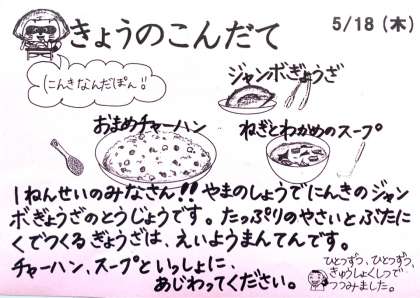 きょうのこんだて
5/18(木)
にんきなんだぽん!!
ジャンボぎょうざ
おまめチャーハン
ねぎとわかめのスープ
1ねんせいのみなさん!! やまのしょうでにんきのジャン
ボぎょうざのとうじょうです。たっぷりのやさいとぶたに
くでつくるぎょうざは、えいようまんてんです。
チャーハン、スープといっしょに、
あじわってください。
ひとつずつ、ひとつずつ、
きゅうしょくしつで
つつみました。